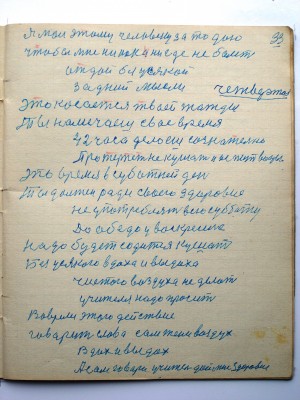 Я мой этому человеку за то даю 33
чтобы мне никока нигде не балит
отдой бизусякой
задний мысли четвертое
Это косается твоей жажды
Ты намечаеш свае время
42 часа делоеш сознателно
Протерпет не кушат и не пит воды
Это время в суботний ден
Ты должен ради своего здоровие
не употреблят всю субату
До обеда у воскриние
Надо будет содится кушат
Без усякого вдоха и выдоха
чистого воздуха не делат
учителя надо просит
Вовримя этого действие
говорит слова самтянеш воздух
Вдох и выдох
А сам говори учител дай мне здоровие